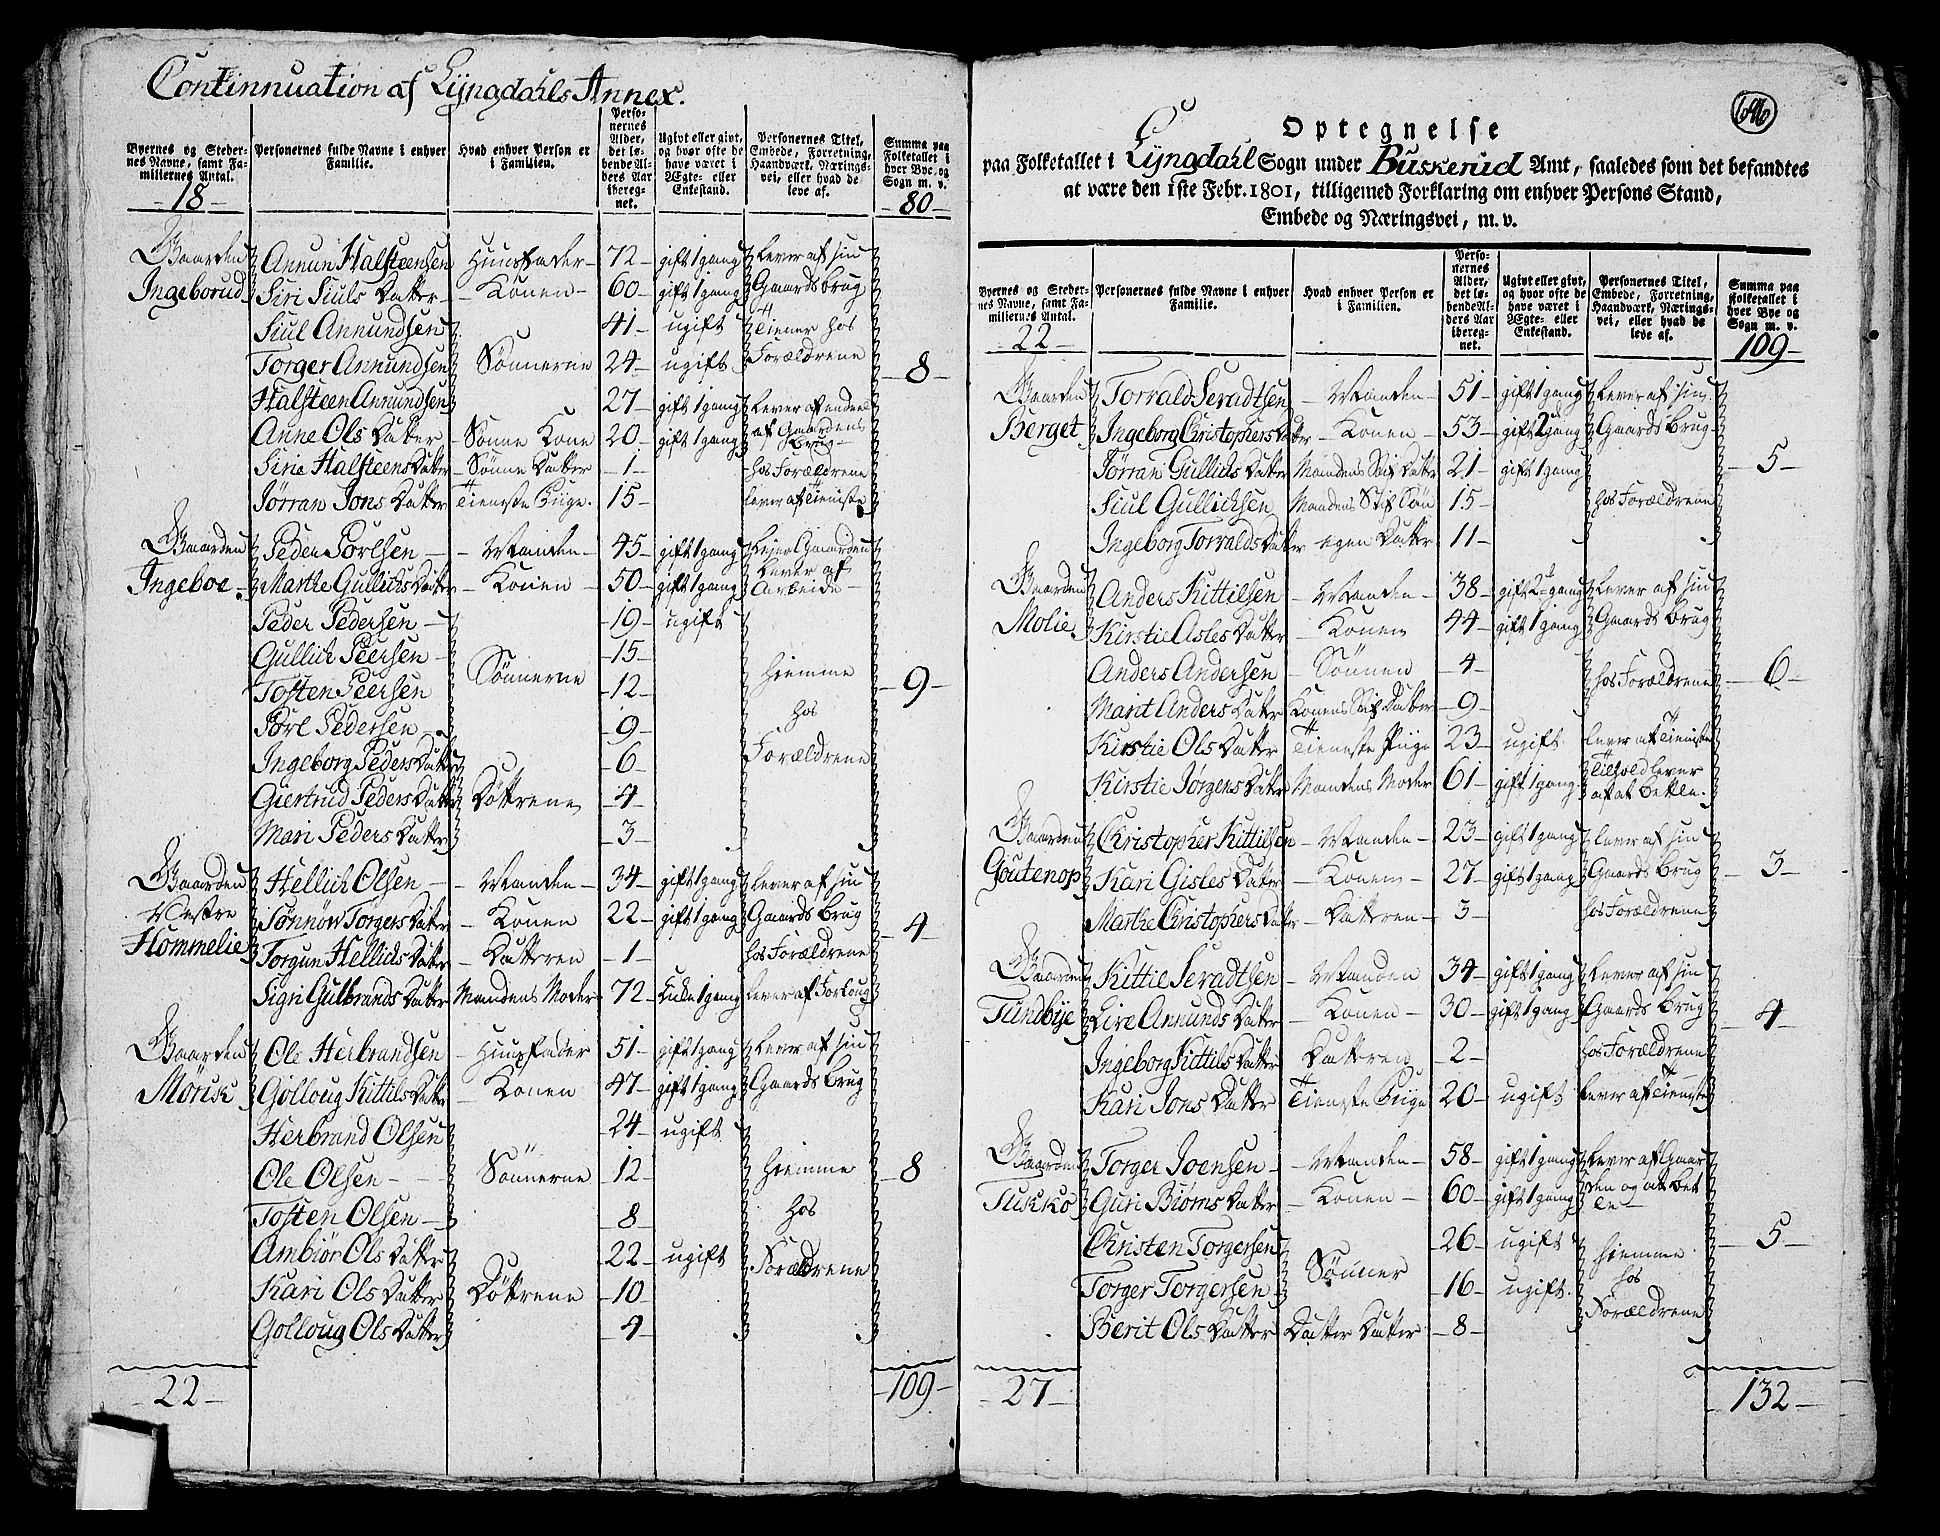 Continnuation af Lyngdahls Annex.
Byernes og Stedernes Navne, samt Familiernes Antal. | Personernes fulde Navne i enhver Familie. | Hvad enhver Person er i Familien. | Personernes Alder, det løbende Alders Aar iberegnet. | Ugivt eller givt, og hvor ofte de have været i Ægte- eller Enkestand. | Personernes Titel, Embede, Forretning, Haandværk, Næringsvei, eller hvad de leve af. | Summa paa Folketallet i hver Bye, og Sogn m. v.
-18- | -80-
Gaarden Annun Halsteensen Huusfader 72 gift 1 gang Lever af sin
Ingeborud Siri Siuls Datter Konen 60 gift 1 gang Gaards brug
Siul Annundsen 41 ugift Tiener hos
Torger Annundsen Sønnerne 24 ugift Forældrene 8
Halsteen Annundsen 27 gift 1 gang Lever af endeel
Anne Ols Datter Sønne Kone 20 gift 1 gang af Gaardens brug
Sirie Halsteens Datter Sønne Datter 1 hos Forældrene
Jørran Jons Datter Tieneste Piige. 15 lever af Tieniste
Gaarden Peder Porlsen Manden 45 gift 1 gang Lejer Gaarden
Ingeboe Marthe Gullichs Datter Konen 50 gift 1 gang Lever af Arbeide
Peder Pedersen 19 ugift
Gullich Peersen 15
Tosten Peersen Sønnerne 12 hiemme 9
Porl Pedersen 9 hos
Ingeborg Peders Datter 6 Forældrene
Giertrud Peders Datter Døttrene 4
Mari Peders Datter 3
Gaarden Hellich Olsen Manden 34 gift 1 gang Lever af sin
Vestre Sønnøv Torgers Datter Konen 22 gift 1 gang Gaards brug 4
Hommelie Torgun Hellichs Datter Datteren 1 hos Forældrene
Sigri Gulbrands Datter Mandens Moder 72 Enke 1 gang lever af Forloug
Gaarden Ole Herbrandsen Huusfader 51 gift 1 gang Lever af sin
Mørck Golloug Kittils Datter Konen 47 gift 1 gang Gaards brug
Herbrand Olsen 24 ugift
Ole Olsen Sønnerne 12 hiemme 8
Tosten Olsen 8 hos
Ambiør Ols Datter 22 ugift Forældrene
Kari Ols Datter Døttrene 10
Golloug Ols Datter 4
22 | 109
646
Optegnelse
paa Folketallet i Lyngdahl Sogn under Buskerud Amt, saaledes som det befandtes
at være den 1ste Febr. 1801, tilligemed Forklaring om enhver Persons Stand,
Embede og Næringsvei, m. v.
Byernes og Stedernes Navne, samt Familiernes Antal. | Personernes fulde Navne i enhver Familie. | Hvad enhver Person er i Familien. | Personernes Alder, det løbende Alders Aar iberegnet. | Ugivt eller givt, og hvor ofte de have været i Ægte- eller Enkestand. | Personernes Titel, Embede, Forretning, Haandværk, Næringsvei, eller hvad de leve af. | Summa paa Folketallet i hver Bye og Sogn m. v.
22 | 109
Gaarden Torvald Seradtsen Manden 51 gift 1 gang Lever af sin
Berget Ingeborg Christophers Datter Konen 53 gift 2 gang Gaards Brug
Jørran Gullichs Datter Mandens Stif Datter 21 gift 1 gang 5
Siul Gullichsen Mandens Stif Søn 15 hos Forældrene
Ingeborg Torvalds Datter egen Datter 11
Gaarden Anders Kittilsen Manden 38 gift 2 gang Lever af sin
Molie Kirstie Asles Datter Konen 44 gift 1 gang Gaards Brug
Anders Andersen Sønnen 4 hos Forældrene 6
Marit Anders Datter Konens Stif Datter 9
Kirstie Ols Datter Tieneste Piige 23 ugift lever af Tieniste
Kirstie Jørgens Datter Mandens Moder 61 gift 1 gang Tilhold lever af at betle.
Gaarden Christopher Kittilsen Manden 23 gift 1 gang lever af sin
Goutenop Kari Gisles Datter Konen 27 gift 1 gang Gaards brug 3
Marthe Christophers Datter Datteren 3 hos Forældrene
Gaarden Kittil Seradtsen Manden 34 gift 1 gang Lever af sin
Tundbye Live Annunds Datter Konen 30 gift 1 gang Gaards brug 4
Ingeborg Kittils Datter Datteren 2 hos Forældrene
Kari Jons Datter Tieneste Piige 20 ugift lever af Tieneste
Gaarden Torger Joensen Manden 58 gift 1 gang Lever af Gaar
Tukko Guri Biørns Datter Konen 60 gift 1 gang den og at bet
le
Christen Torgersen 26 ugift hiemme 5
Torger Torgersen Sønner 16 ugift. hos
Berit Ols Datter Datter Datter 8 Forældrene
27 | 132